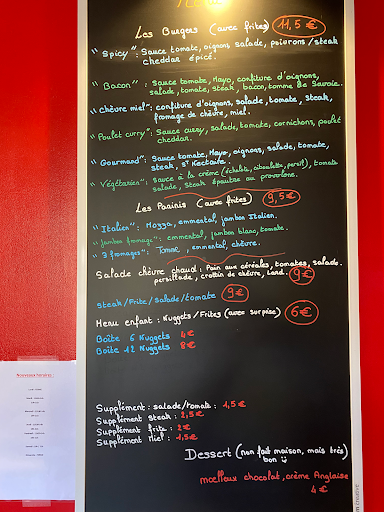 Les Burgers (avec frites) 11,5 €
"Spicy": Sauce tomate, oignons, salade, poivrons, steak
cheddar épicé.
"Bacon" : Sauce tomate, Mayo, confiture d'oignons,
salade, tomate, steak, bacon, tomme de Savoie.
"Chèvre miel": confiture d'oignons, salade, tomate, steak,
fromage de chèvre, miel.
"Poulet curry": Sauce curry, salade, tomate, cornichons, poulet
cheddar.
"Gourmand": Sauce tomate, Mayo, oignons, salade, tomate,
steak, St Nectaire.
"Végétarien": sauce à la crème (échalote, ciboulette, persil), tomate
salade, steak épautre au provolone.
Les Paninis (avec frites) 9,5€
"Italien": Mozza, emmental, jambon Italien.
"Jambon fromage": emmental, jambon blanc, tomate.
"3 fromages": Tomme, emmental, chèvre.
Salade chèvre chaud: Pain aux céréales, tomates, salade,
persillade, crottin de chèvre, lard. 9€
Steak/Frite/salade/tomate 9€
Menu enfant : Nuggets/Frites (avec surprise) 6€
Boîte 6 Nuggets 4€
Boîte 12 Nuggets 8€
Supplément : salade/tomate : 1,5€
Supplément steak : 2,5€
Supplément frite : 2€
Supplément miel : 1,5€
Dessert (non fait maison, mais très)
bon
moelleux chocolat, crème Anglaise
4€
Nouveaux horaires :